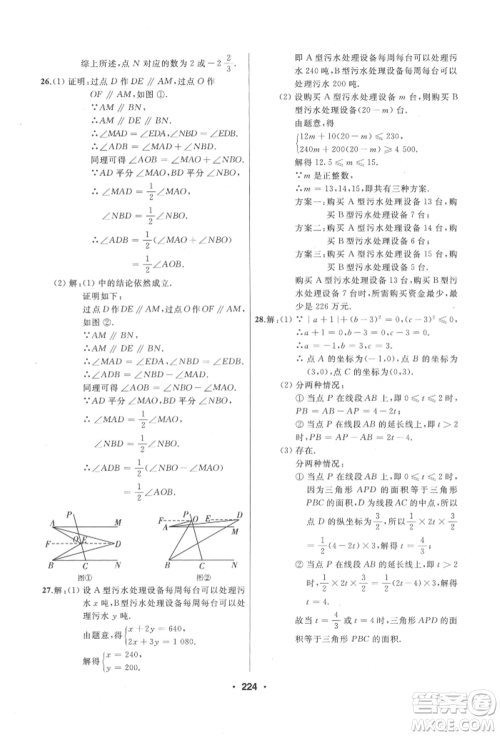 综上所述，点 N 对应的数为 2 或 -2 2/3.
26.(1) 证明：过点 D 作 DE∥AM，过点 O 作
OF∥AM，如图①.
∵AM∥DE，AM∥BN，
∴AM∥DE∥BN.
∴∠MAD=∠EDA，∠NBD=∠BDE.
∴∠ADB=∠MAD+∠NBD.
同理可得∠AOB=∠MAO+∠NBO.
∵AD 平分∠MAO，BD 平分∠NBO，
∴∠MAD=1/2∠MAO，
∠NBD=1/2∠NBO.
∴∠ADB=1/2(∠MAO+∠NBO)
=1/2∠AOB.
(2) 解：(1) 中的结论依然成立.
证明如下：
过点 D 作 DE∥AM，过点 O 作 OF∥AM，
如图②.
∵AM∥DE，AM∥BN，
∴AM∥DE∥BN.
∴∠MAD=∠EDA，∠NBD=∠BDE.
∴∠ADB=∠MAD+∠NBD.
同理可得∠AOB=∠MAO+∠NBO.
∵AD 平分∠MAO，BD 平分∠NBO，
∴∠MAD=1/2∠MAO，
∠NBD=1/2∠NBO.
∴∠ADB=1/2(∠MAO+∠NBO)
=1/2∠AOB.
图①
图②
27.解：(1) 设 A 型污水处理设备每周每台可以处理污
水 x 吨，B 型污水处理设备每周每台可以处
理污水 y 吨.
由题意，得 {x+2y=640,
2x+3y=1 080.
解得 {x=240,
y=200.
即 A 型污水处理设备每周每台可以处理污
水 240 吨，B 型污水处理设备每周每台可以
处理污水 200 吨.
(2) 设购买 A 型污水处理设备 m 台，则购买 B
型污水处理设备 (20-m) 台.
由题意，得
{12m+10(20-m)≤230,
240m+200(20-m)≥4 500.
解得 12.5≤m≤15.
∵m 是正整数，
∴m=13,14,15，即共有三种方案.
方案一：购买 A 型污水处理设备 13 台，购
买 B 型污水处理设备 7 台；
方案二：购买 A 型污水处理设备 14 台，购
买 B 型污水处理设备 6 台；
方案三：购买 A 型污水处理设备 15 台，购
买 B 型污水处理设备 5 台.
购买 A 型污水处理设备 13 台，购买 B 型污
水处理设备 7 台时，所需购买资金最少，最
少是 226 万元.
28.解：(1) ∵|a+1|+(b-3)²+(c-3)²=0，
∴a+1=0，(b-3)²=0，(c-3)²=0.
∴a=-1，b=3，c=3.
∴点 A 的坐标为 (-1,0)，点 B 的坐标为
(3,0)，点 C 的坐标为 (0,3).
(2) 分两种情况：
① 当点 P 在线段 AB 上时，即 0≤t≤2 时，
PB=AB-AP=4-2t；
② 当点 P 在线段 AB 的延长线上时，即 t>2
时，PB=AP-AB=2t-4.
(3) 存在.
分两种情况：
① 当点 P 在线段 AB 上时，即 0≤t≤2 时，
因为三角形 APD 的面积等于三角形
PBC 的面积，点 D 是线段 AC 的中点，所以
点 D 的纵坐标为 3/2，所以 1/2×2t×3/2=
1/2×(4-2t)×3，解得 t=4/3；
② 当点 P 在线段 AB 的延长线上时，即 t>2
时，1/2×2t×3/2=1/2×(2t-4)×3，解得 t=4.
综上所述，当 t=4/3 或 4 时，三角形 APD 的
面积等于三角形 PBC 的面积.
224